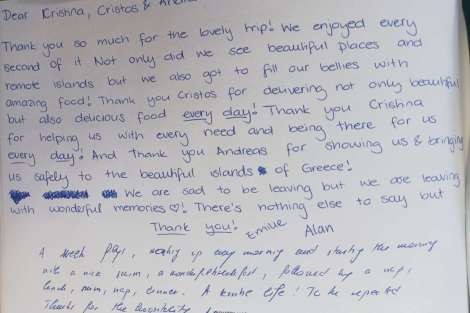 Dear Krishna, Cristos &
Thank you so much for the lovely trip! We enjoyed every
second of it. Not only did we see beautiful places and
remote islands but we also got to fill our bellies with
amazing food! Thank you Cristos for delivering not only beautiful
but also delicious food every day! Thank you Crishna
for helping us with every need and being there for us
every day! And Thank you Andreas for showing us & bringing
us safely to the beautiful islands of Greece!
We are sad to be leaving but we are leaving
with wonderful memories ♡! There's nothing else to say but
Thank you! Alan
A week, waking up every morning and starting the morning
with a nice swim, a wonderful breakfast, followed by a nap,
lunch, swim, nap, dinner. A life! To be repeated
Thanks for the hospitality